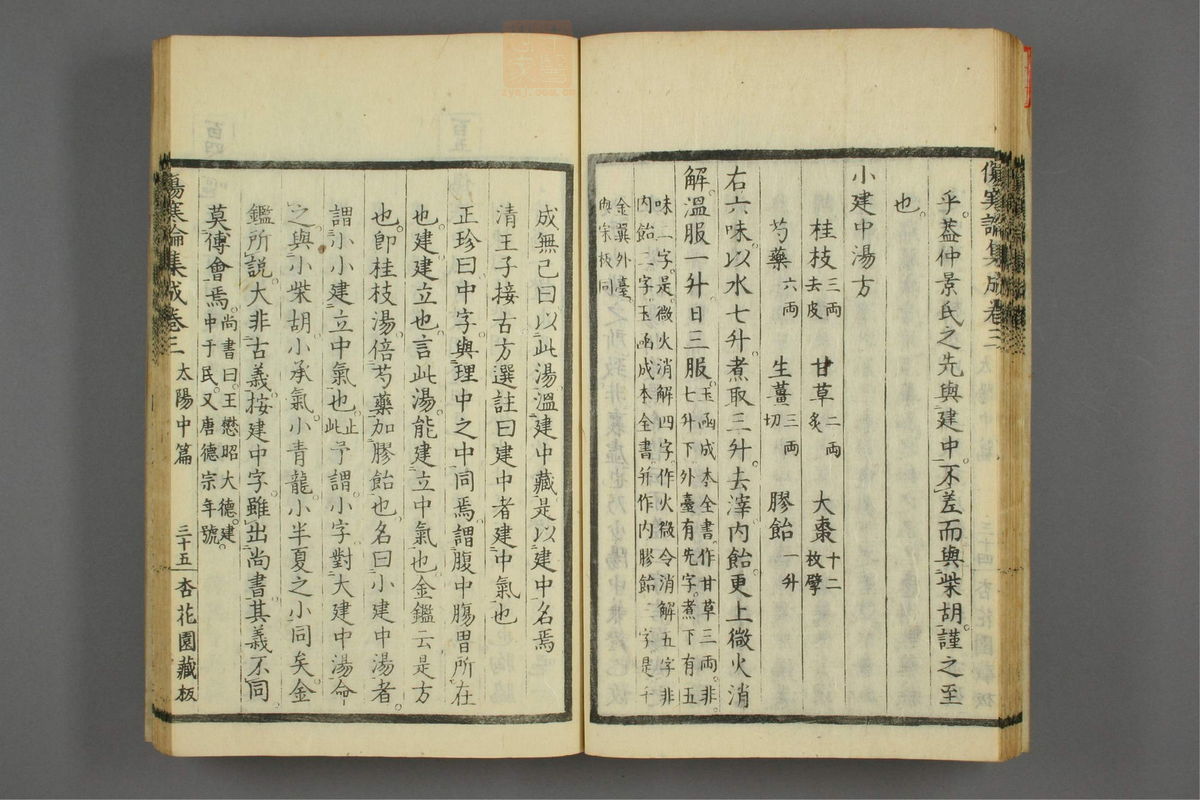 傷寒論集成卷三
乎。蓋仲景氏之先與建中。不差而與柴胡。謹之至
也。
小建中湯方
桂枝三兩去皮 甘草二兩炙 大棗十二枚擘
芍藥六兩 生薑三兩切 膠飴一升
右六味。以水七升。煮取三升。去滓。內飴。更上微火消
解。溫服一升。日三服。玉函成本全書。作甘草三兩。非。七升下。外臺有先字。煮下有五
味二字。是。微火消解四字。作火微令消解五字。非。內飴二字。玉函成本全書。并作內膠飴三字。是。千
金翼外臺。與宋板同
成無己曰。以此湯。溫建中藏。是以建中名焉
清王子接古方選註曰。建中者。建中氣也
正珍曰。中字。與理中之中同焉。謂腹中腸胃所在
也。建。建立也。言此湯。能建立中氣也。金鑑云。是方
也。即桂枝湯。倍芍藥加膠飴也。名曰小建中湯者。
謂小小建立中氣也。止此予謂。小字。對大建中湯命
之。與小柴胡。小承氣。小青龍。小半夏之小同矣。金
鑑所說。大非古義。按建中字。雖出尚書。其義不同。
莫傅會焉。尚書曰。王懋昭大德。建中于民。又唐德宗年號
傷寒論集成卷三 太陽中篇 三十五 杏花園藏板